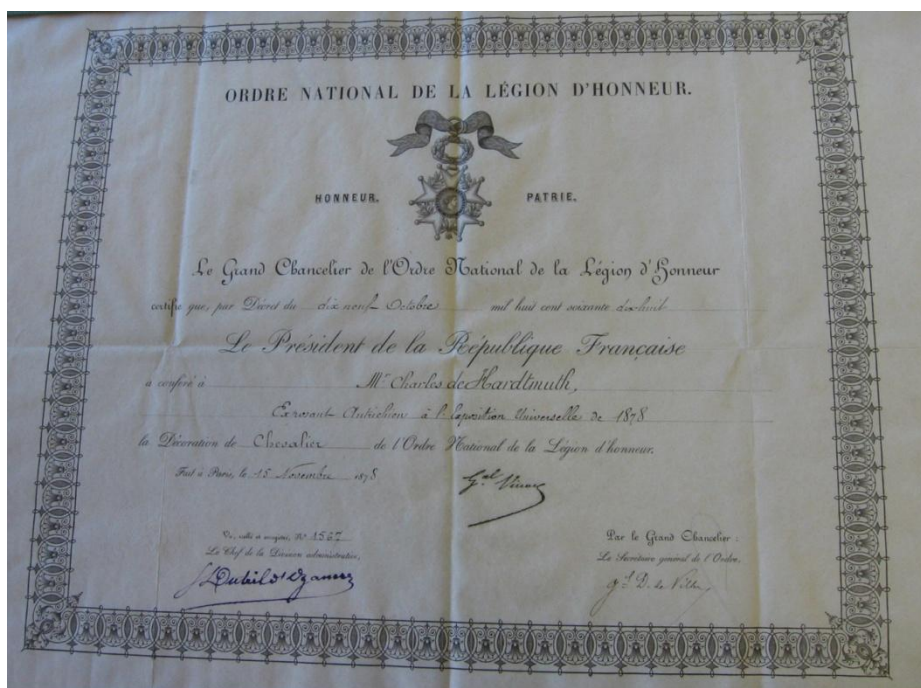 ORDRE NATIONAL DE LA LÉGION D'HONNEUR.
HONNEUR. PATRIE.
Le Grand Chancelier de l'Ordre National de la Légion d'Honneur
certifie que, par Décret du dix neuf Octobre mil huit cent soixante dix-huit
Le Président de la République Française
a conféré à Mr. Charles de Hardtmuth,
Exposant Autrichien à l'Exposition Universelle de 1878
la Décoration de Chevalier de l'Ordre National de la Légion d'honneur.
Fait à Paris, le 15 Novembre 1878
Gal Vinoy
Vu, scellé et enregistré, No 1567
Par le Grand Chancelier :
Le Chef de la Division administrative,
Le Secrétaire général de l'Ordre,
gal D. de